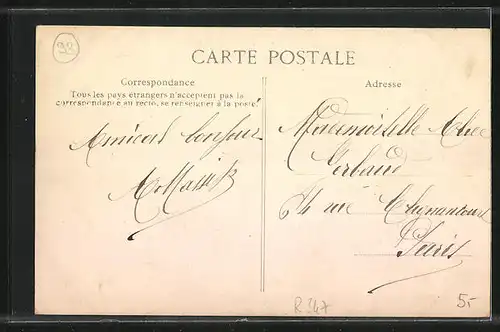 92
CARTE POSTALE
Correspondance
Tous les pays étrangers n'acceptent pas la
correspondance au recto, se renseigner à la poste
Adresse
Amical bonjour
Mademoiselle
Gerbaud
rue Clignancourt
Paris
R 347
5-